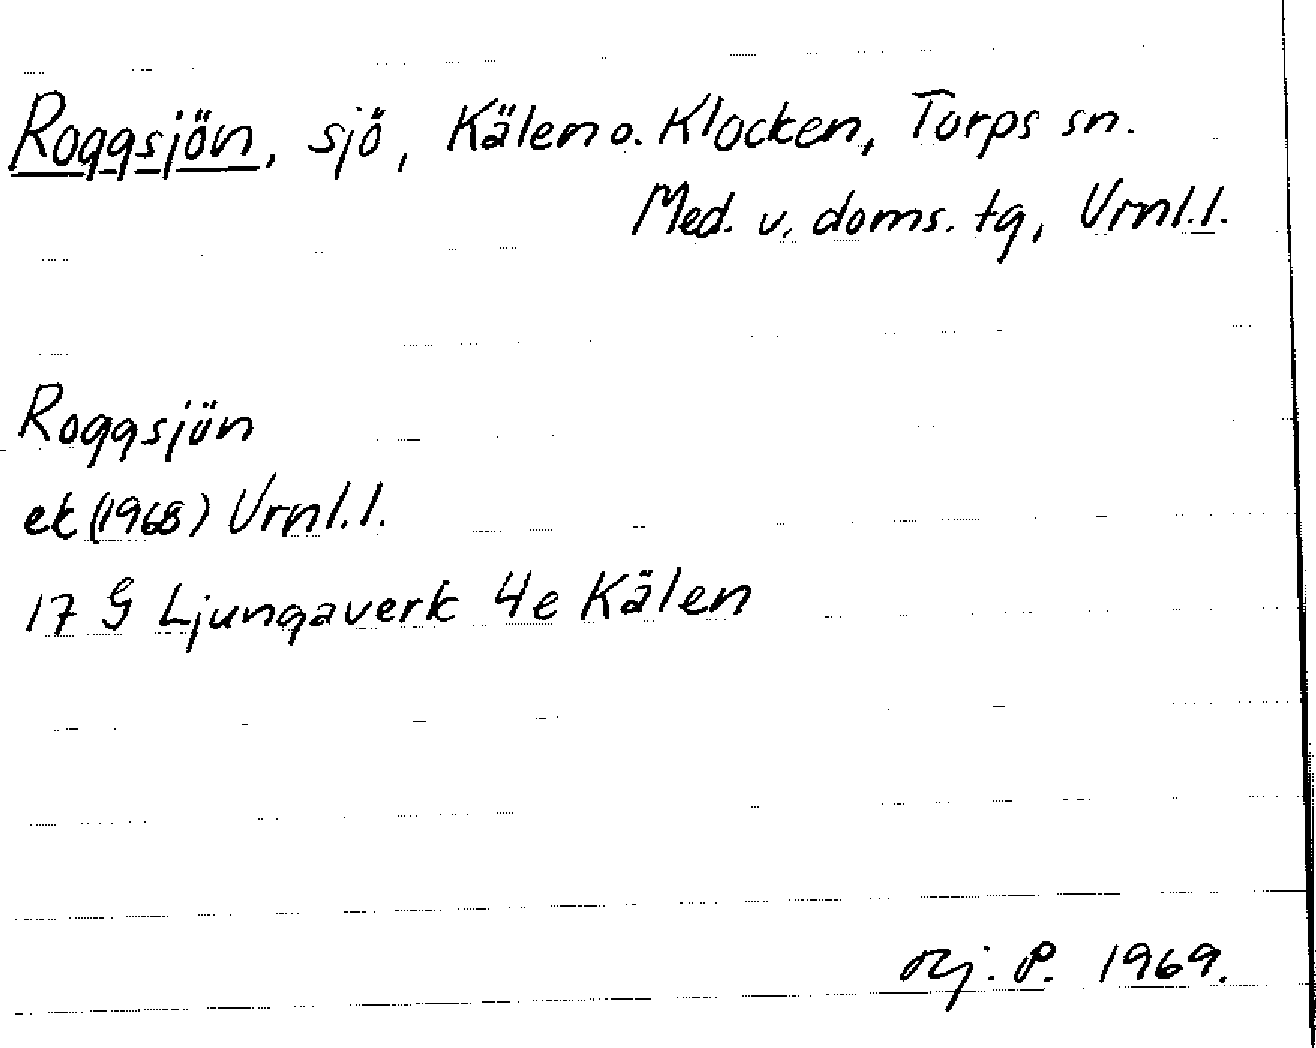 Roggsjön, sjö, Kälen o. Klocken, Torps sn.
Med. v. doms. tg, Vrnl.l.
Roggsjön
ek (1968) Vrnl.l.
17 G Ljungaverk 4e Kälen
P. 1969.